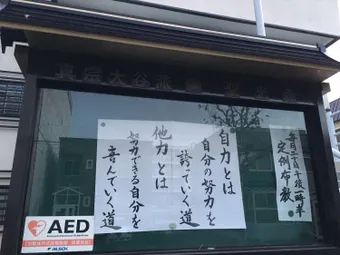 真宗大谷派
自力とは
自分の努力を
誇っていく道
他力とは
努力できる自分を
喜んでいく道
定例布教
AED
ALSOK